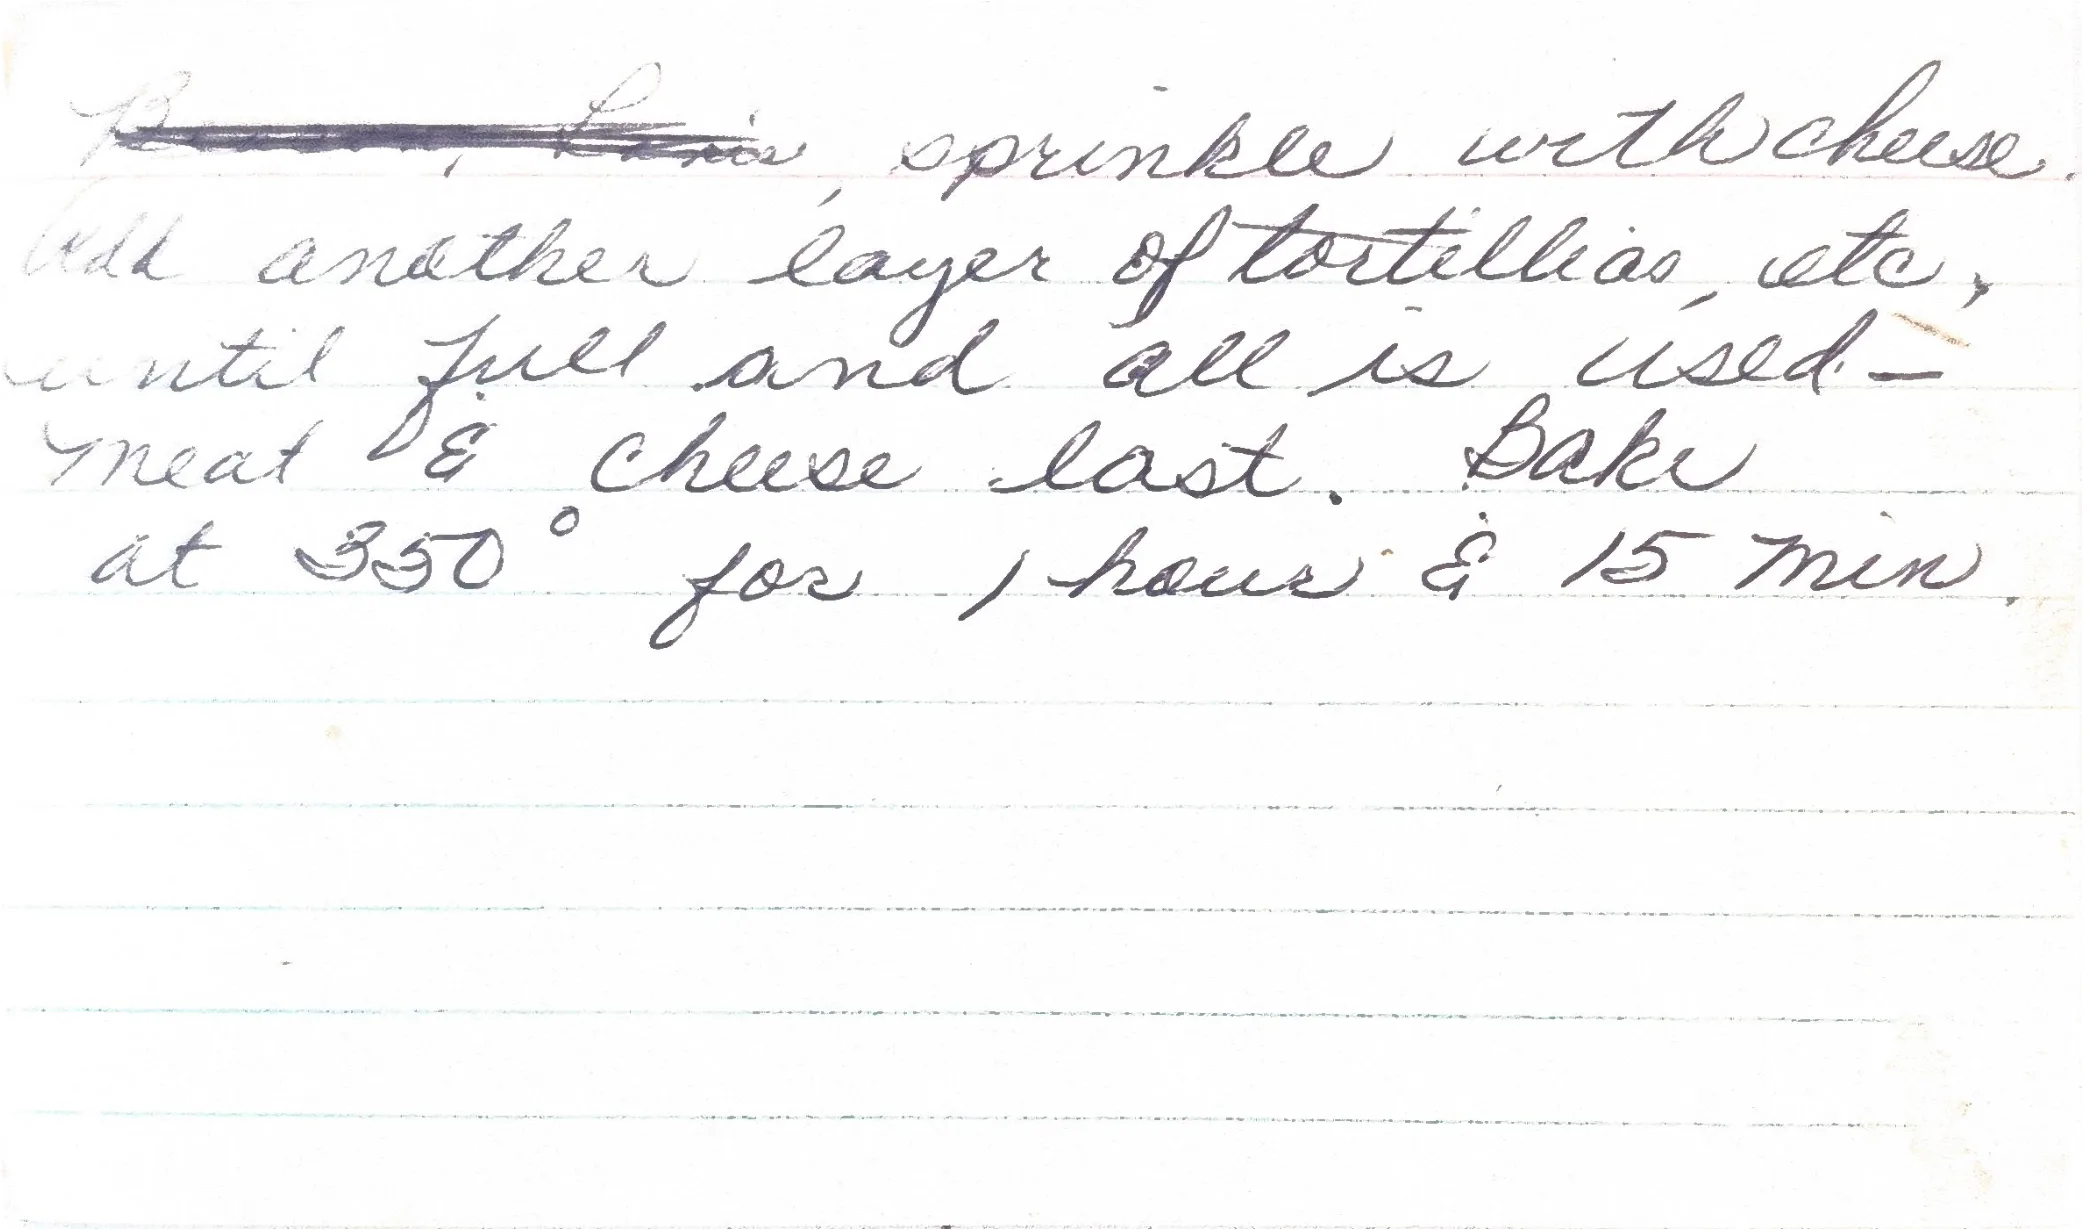 , sprinkle with cheese.
Add another layer of tortillias, etc,
until full and all is used –
meat & cheese last. Bake
at 350° for 1 hour & 15 min.